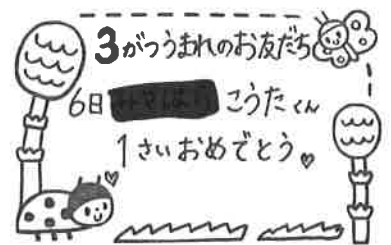 3がつうまれのお友だち
6日 こうたくん
1さいおめでとう